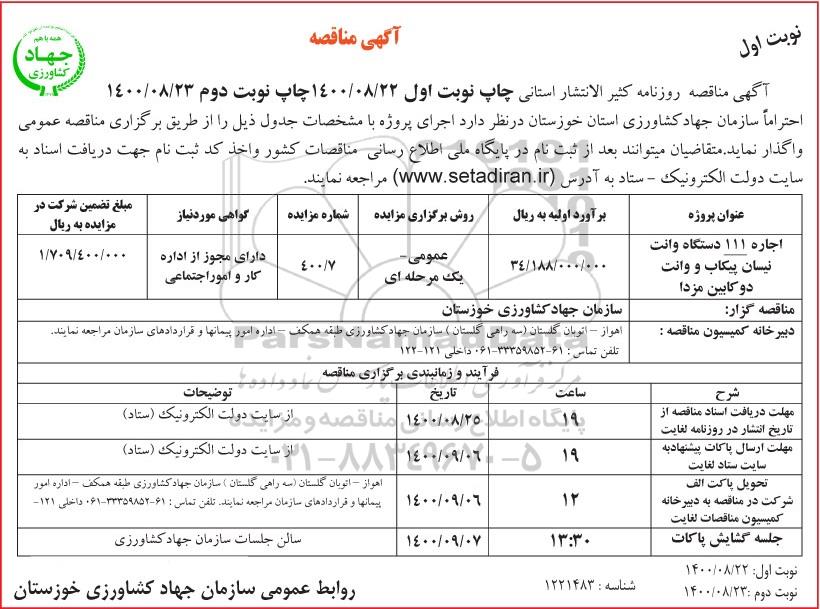 نوبت اول
آگهی مناقصه
همه با هم
جهاد
کشاورزی
آگهی مناقصه روزنامه کثیر الانتشار استانی چاپ نوبت اول ۱۴۰۰/۰۸/۲۲چاپ نوبت دوم ۱۴۰۰/۰۸/۲۳
احتراماً سازمان جهادکشاورزی استان خوزستان درنظر دارد اجرای پروژه با مشخصات جدول ذیل را از طریق برگزاری مناقصه عمومی
واگذار نماید.متقاضیان میتوانند بعد از ثبت نام در پایگاه ملی اطلاع رسانی مناقصات کشور واخذ کد ثبت نام جهت دریافت اسناد به
سایت دولت الکترونیک – ستاد به آدرس (www.setadiran.ir) مراجعه نمایند.
عنوان پروژه برآورد اولیه به ریال روش برگزاری مزایده شماره مزایده گواهی موردنیاز مبلغ تضمین شرکت در
مزایده به ریال
اجاره ۱۱۱ دستگاه وانت
نیسان پیکاب و وانت
دوکابین مزدا
۳۴/۱۸۸/۰۰۰/۰۰۰
عمومی–
یک مرحله ای
۴۰۰/۷
دارای مجوز از اداره
کار و اموراجتماعی
۱/۷۰۹/۴۰۰/۰۰۰
مناقصه گزار: سازمان جهادکشاورزی خوزستان
دبیرخانه کمیسیون مناقصه : اهواز – اتوبان گلستان (سه راهی گلستان ) سازمان جهادکشاورزی طبقه همکف – اداره امور پیمانها و قراردادهای سازمان مراجعه نمایند.
تلفن تماس : ۶۱-۳۳۳۵۹۸۵۲-۰۶۱ داخلی ۱۲۱-۱۲۲
فرآیند و زمانبندی برگزاری مناقصه
شرح ساعت تاریخ توضیحات
مهلت دریافت اسناد مناقصه از
تاریخ انتشار در روزنامه لغایت
۱۹ ۱۴۰۰/۰۸/۲۵ از سایت دولت الکترونیک (ستاد)
مهلت ارسال پاکات پیشنهادبه
سایت ستاد لغایت
۱۹ ۱۴۰۰/۰۹/۰۶ از سایت دولت الکترونیک (ستاد)
تحویل پاکت الف
شرکت در مناقصه به دبیرخانه
کمیسیون مناقصات لغایت
۱۲ ۱۴۰۰/۰۹/۰۶
اهواز – اتوبان گلستان (سه راهی گلستان ) سازمان جهادکشاورزی طبقه همکف – اداره امور
پیمانها و قراردادهای سازمان مراجعه نمایند. تلفن تماس : ۶۱-۳۳۳۵۹۸۵۲-۰۶۱ داخلی ۱۲۱-
جلسه گشایش پاکات ۱۳:۳۰ ۱۴۰۰/۰۹/۰۷ سالن جلسات سازمان جهادکشاورزی
نوبت اول: ۱۴۰۰/۰۸/۲۲
نوبت دوم :۱۴۰۰/۰۸/۲۳
شناسه : ۱۲۲۱۴۸۳
روابط عمومی سازمان جهاد کشاورزی خوزستان
ParsNamadData
پایگاه اطلاع رسانی مناقصه و مزایده
۰۲۱-۸۸۳۴۹۶۷۰-۵